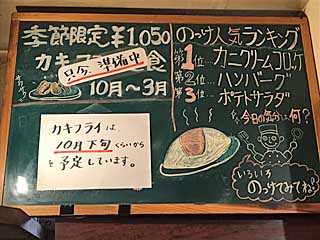 季節限定 ¥1,050
カキフ 食
只今、準備中
サクサクッ
10月～3月
カキフライは、
10月下旬くらいから
を予定しています。
のっけ人気ランキング
第1位…カニクリームコロッケ
第2位…ハンバーグ
第3位…ポテトサラダ
今日の気分は何?
いろいろ
のっけてみてね♡